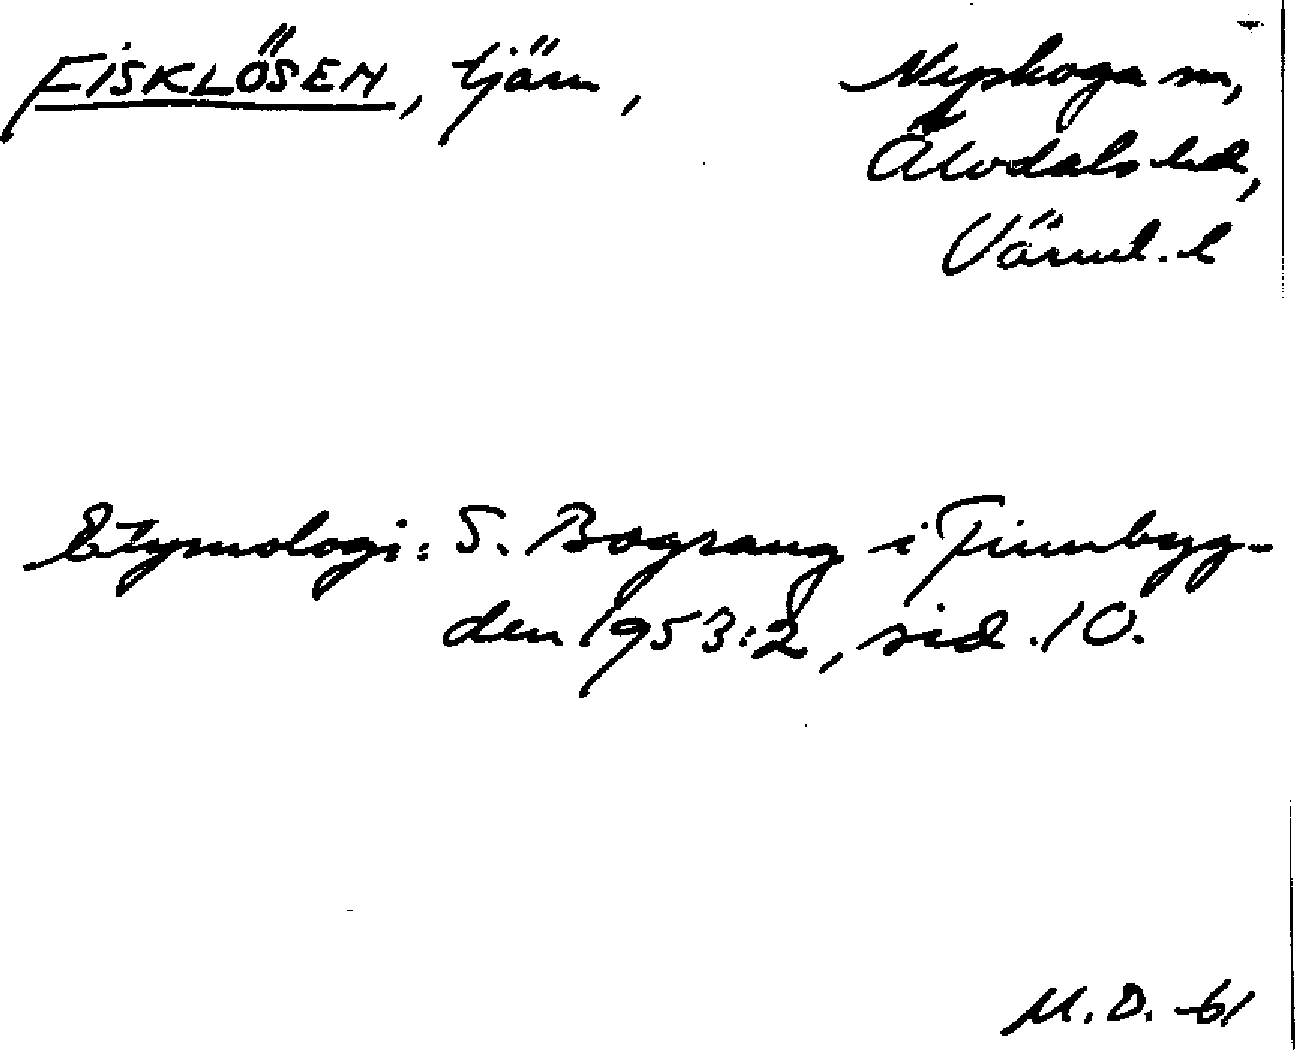 FISKLÖSEN, tjärn, Nyskoga sn,
Älvdals hd,
Värml. l
Etymologi: S. Bograng i Finnbyg-
den 1953:2, sid. 10.
M.D. -61